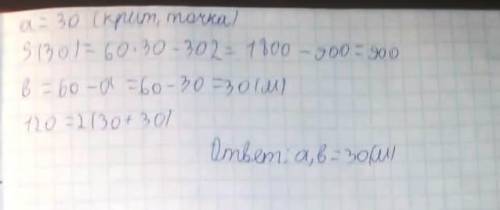 a = 30 (крит, точка)
S(30) = 60·30 - 302 = 1800 - 900 = 900
в = 60 - a = 60 - 30 = 30(м)
120 = 2(30 + 30)
Ответ: a, в = 30(м)